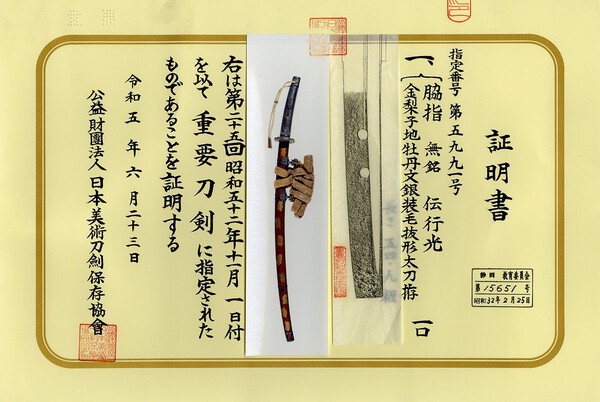 証明書
指定番号 第五九九一号
一、脇指 無銘 伝行光
金梨子地牡丹文銀装毛抜形太刀拵
一口
右は第二十五回昭和五十二年十一月一日付
を以て重要刀剣に指定された
ものであることを証明する
令和五年六月二十三日
公益財團法人日本美術刀劍保存協會
静岡 教育委員会
第15651号
昭和32年2月25日